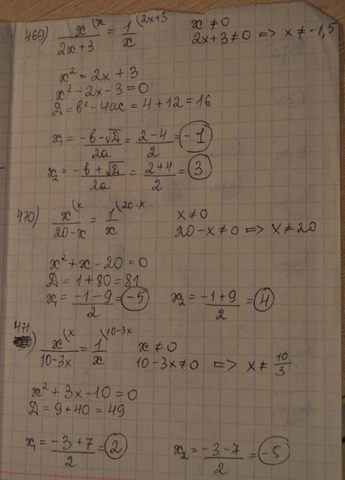 469) x^(x / 2x+3 = 1^(2x+3 / x x ≠ 0
2x+3 ≠ 0 => x ≠ -1,5
x² = 2x + 3
x² - 2x - 3 = 0
D = b² - 4ac = 4 + 12 = 16
x₁ = -b-√D / 2a = 2-4 / 2 = -1
x₂ = -b+√D / 2a = 2+4 / 2 = 3
470) x^(x / 20-x = 1^(20-x / x x ≠ 0
20-x ≠ 0 => x ≠ 20
x² + x - 20 = 0
D = 1 + 80 = 81
x₁ = -1-9 / 2 = -5 x₂ = -1+9 / 2 = 4
471) x^(x / 10-3x = 1^(10-3x / x x ≠ 0
10-3x ≠ 0 => x ≠ 10/3
x² + 3x - 10 = 0
D = 9 + 40 = 49
x₁ = -3+7 / 2 = 2 x₂ = -3-7 / 2 = -5